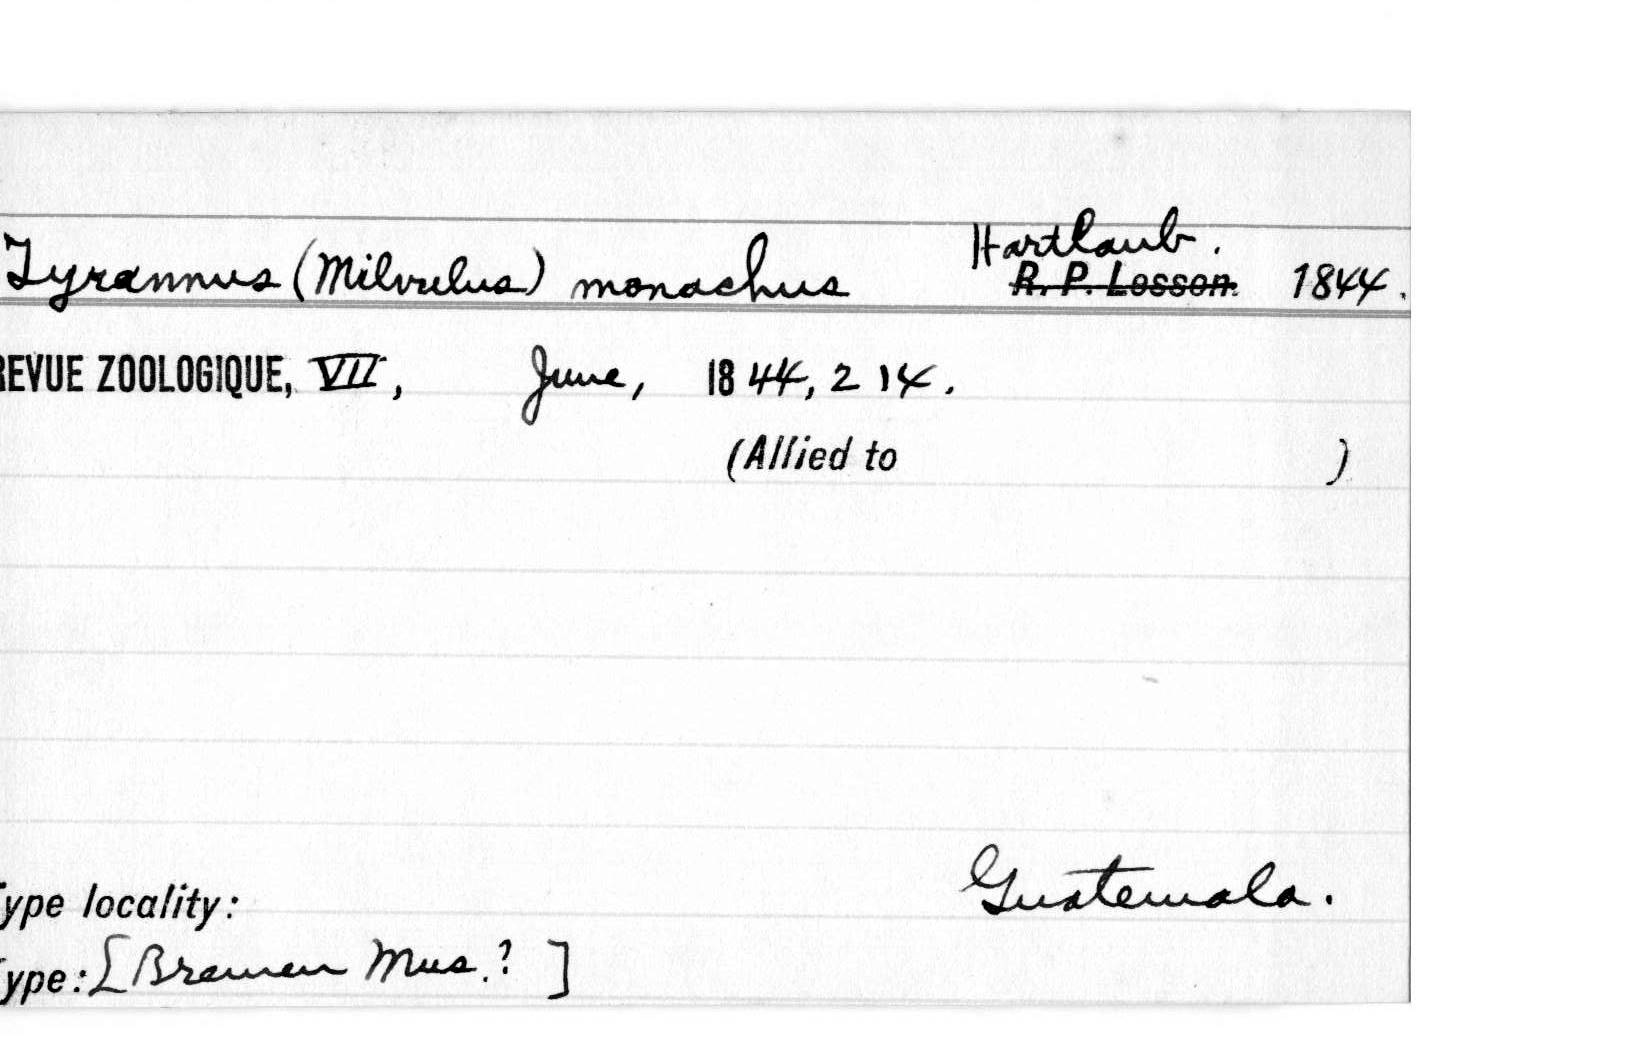 Tyrannus (Milvulus) monachus Hartlaub.
R. P. Lesson. 1844.
REVUE ZOOLOGIQUE, VII, June, 1844, 214.
(Allied to )
Type locality: Guatemala.
Type: [Bremen Mus.? ]